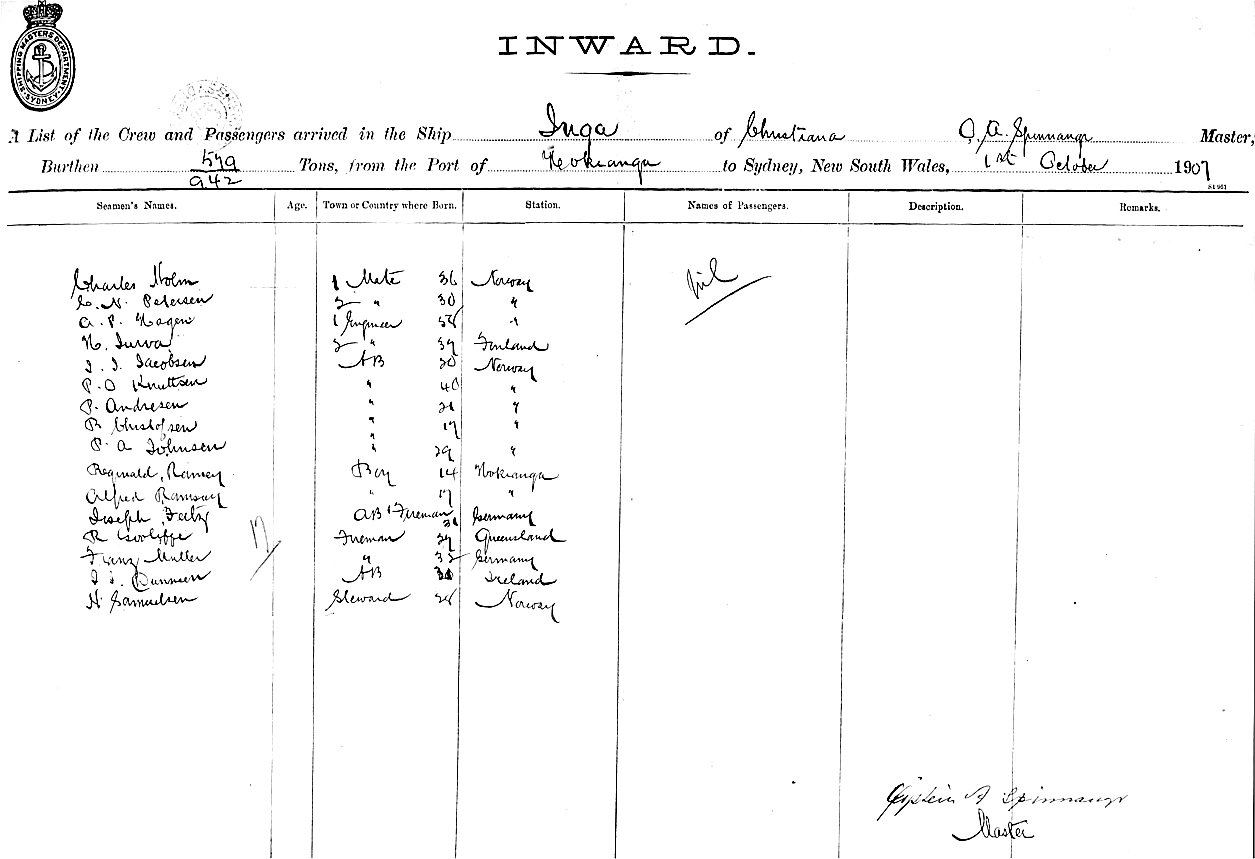 SHIPPING MASTERS DEPARTMENT SYDNEY
INWARD.
A List of the Crew and Passengers arrived in the Ship Inga of Christiana A. Spinnangr Master,
Burthen 579 Tons, from the Port of Hokianga to Sydney, New South Wales, 1st October 1907
942
Seamen's Names. Age. Town or Country where Born. Station. Names of Passengers. Description. Remarks.
Charles Holm 1 Mate 36 Norway nil
C. N. Petersen 2 " 30 "
A. P. Hagen 1 Engineer "
H. 2 " 39 Finland
J. J. Jacobsen AB 20 Norway
P. O Knuttsen " 40 "
P. Andresen " 21 "
R Christofsen " 17 "
P. A Johnsen " 29 "
Reginald Ramsey Boy 14 Hokianga
Alfred Ramsay " 17 "
Joseph AB & Fireman Germany
R Fireman 29 Queensland
17
Franz Muller " 32 Germany
J. J. AB Ireland
H Samuelsen Steward 28 Norway
Captain A Spinnangr
Master